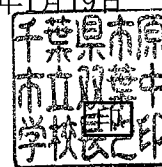 年1月19日
千葉県市原
市立双葉中
学校長之印
印